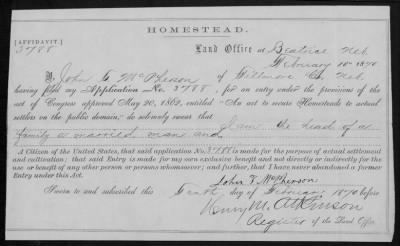 HOMESTEAD.
[AFFIDAVIT.]
3788
Land Office at Beatrice Neb.
February 10th 1870
I, John McPherson of Fillmore Co Neb.
having filed my Application No. 3788, for an entry under the provisions of the
act of Congress approved May 20, 1862, entitled "An act to secure Homesteads to actual
settlers on the public domain," do solemnly swear that I am the head of a
family a married man and
A Citizen of the United States, that said application No. 3788 is made for the purpose of actual settlement
and cultivation; that said Entry is made for my own exclusive benefit and not directly or indirectly for the
use or benefit of any other person or persons whomsoever; and further, that I have never abandoned a former
Entry under this Act.
John McPherson
Sworn to and subscribed this Tenth day of February 1870 before
Henry M. Atkinson
Register of the Land Office.